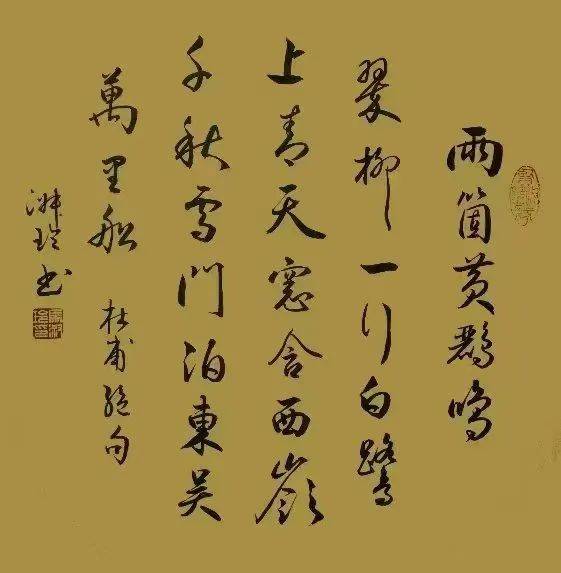 兩箇黄鸝鳴
翠柳一行白鷺
上青天窓含西嶺
千秋雪門泊東吴
萬里船 杜甫絶句
玲书